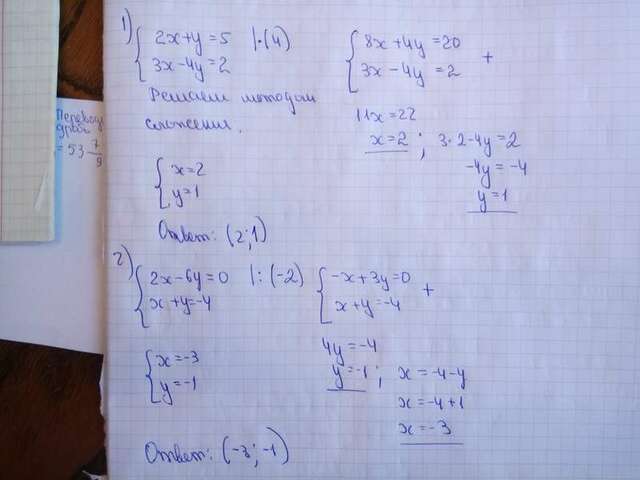 1) { 2x+y=5 |·(4)
3x-4y=2
Решаем методом
сложения.
{ 8x+4y=20
3x-4y=2 +
11x=22
x=2; 3·2-4y=2
-4y=-4
y=1
{ x=2
y=1
Ответ: (2;1)
2) { 2x-6y=0 |:(-2)
x+y=-4
{ -x+3y=0
x+y=-4 +
4y=-4
y=-1; x=-4-y
x=-4+1
x=-3
{ x=-3
y=-1
Ответ: (-3;-1)
=53 7/9